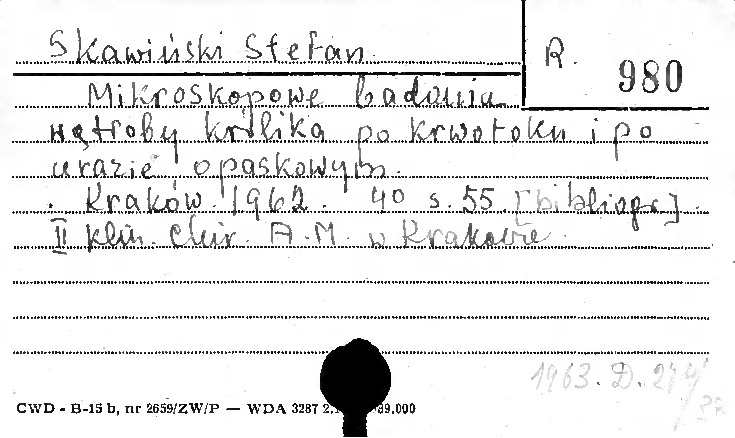 Skawiński Stefan
R. 980
Mikroskopowe badania
wątroby królika po krwotoku i po
urazie opaskowym.
. Kraków. 1962. 40 s. 55 [bibliogr]
II Klin. Chir. A.M. w Krakowie.
1963. D.
CWD - B-15 b, nr 2659/ZW/P — WDA 3287